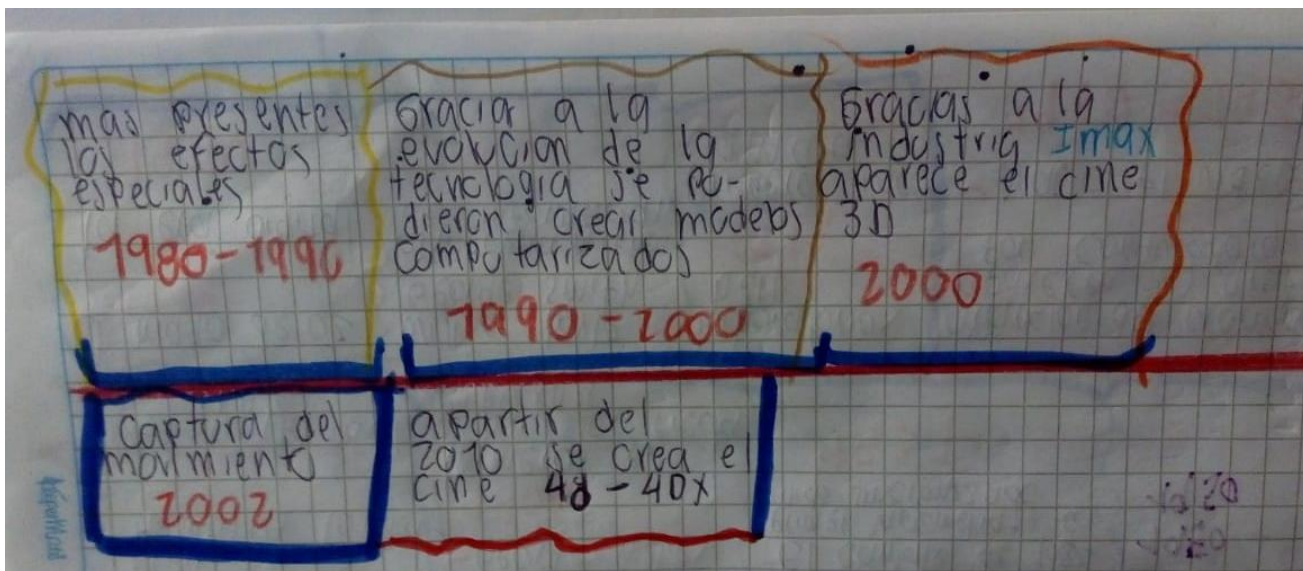 mas presentes
los efectos
especiales
1980-1990
Gracia a la
evolucion de la
tecnologia se pu-
dieron crear modelos
computarizados
1990-2000
Gracias a la
industria Imax
aparece el cine
3D
2000
captura del
movimiento
2002
apartir del
2010 se crea el
cine 4d-4Dx